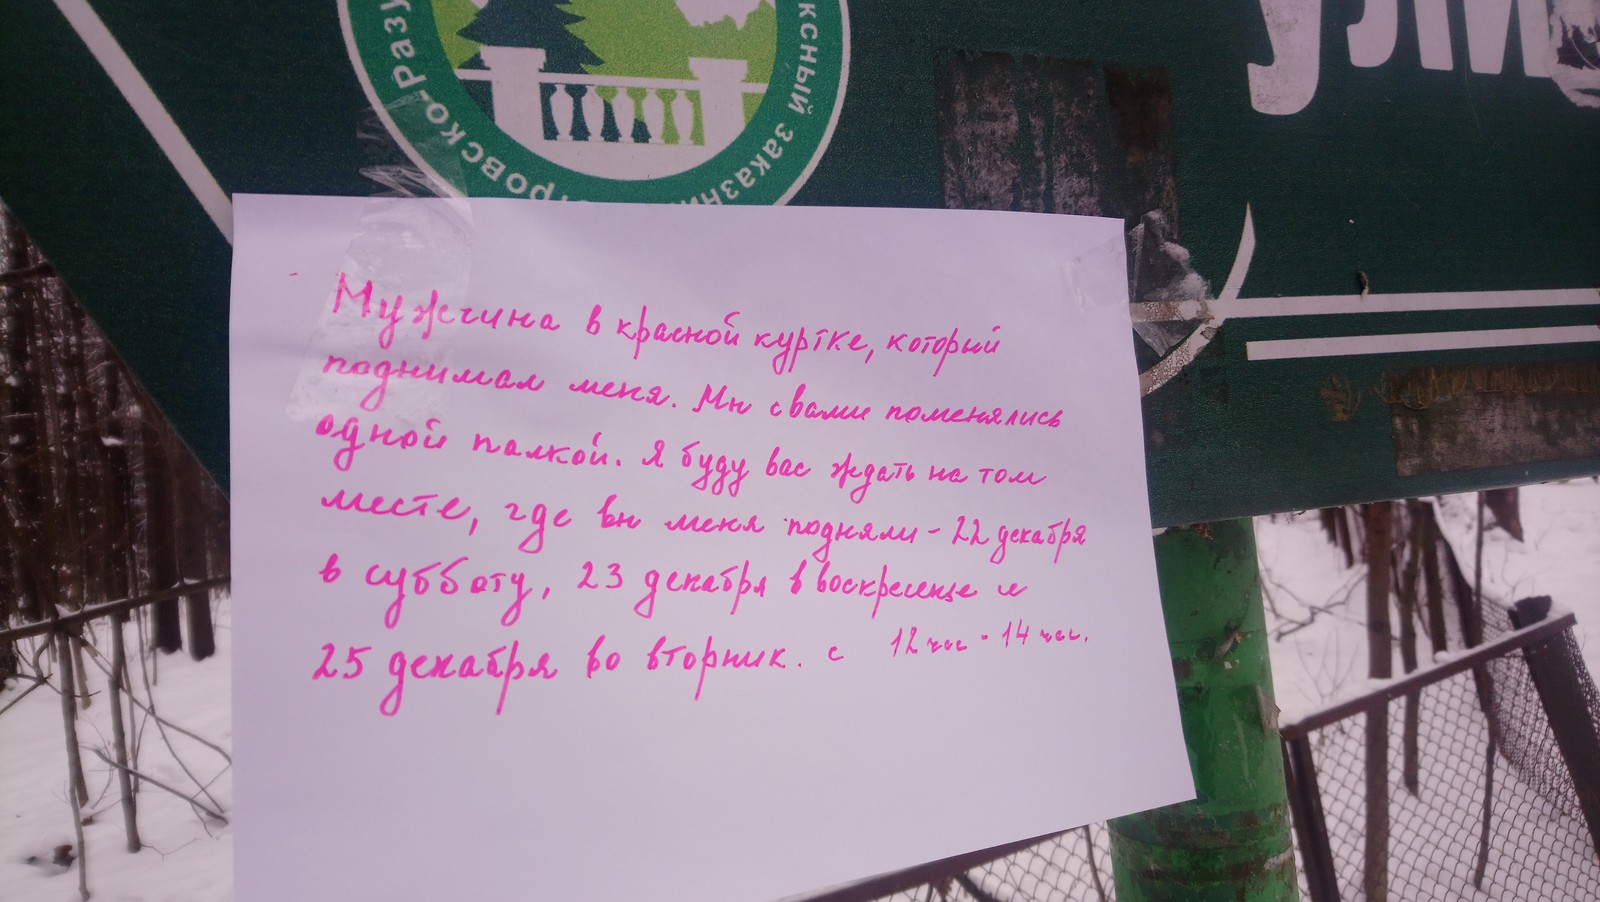 ксный заказни
тровско-Разу
ули
Мужчина в красной куртке, который
поднимал меня. Мы с вами поменялись
одной палкой. Я буду вас ждать на том
месте, где вы меня подняли - 22 декабря
в субботу, 23 декабря в воскресенье и
25 декабря во вторник. с 12 час - 14 час.